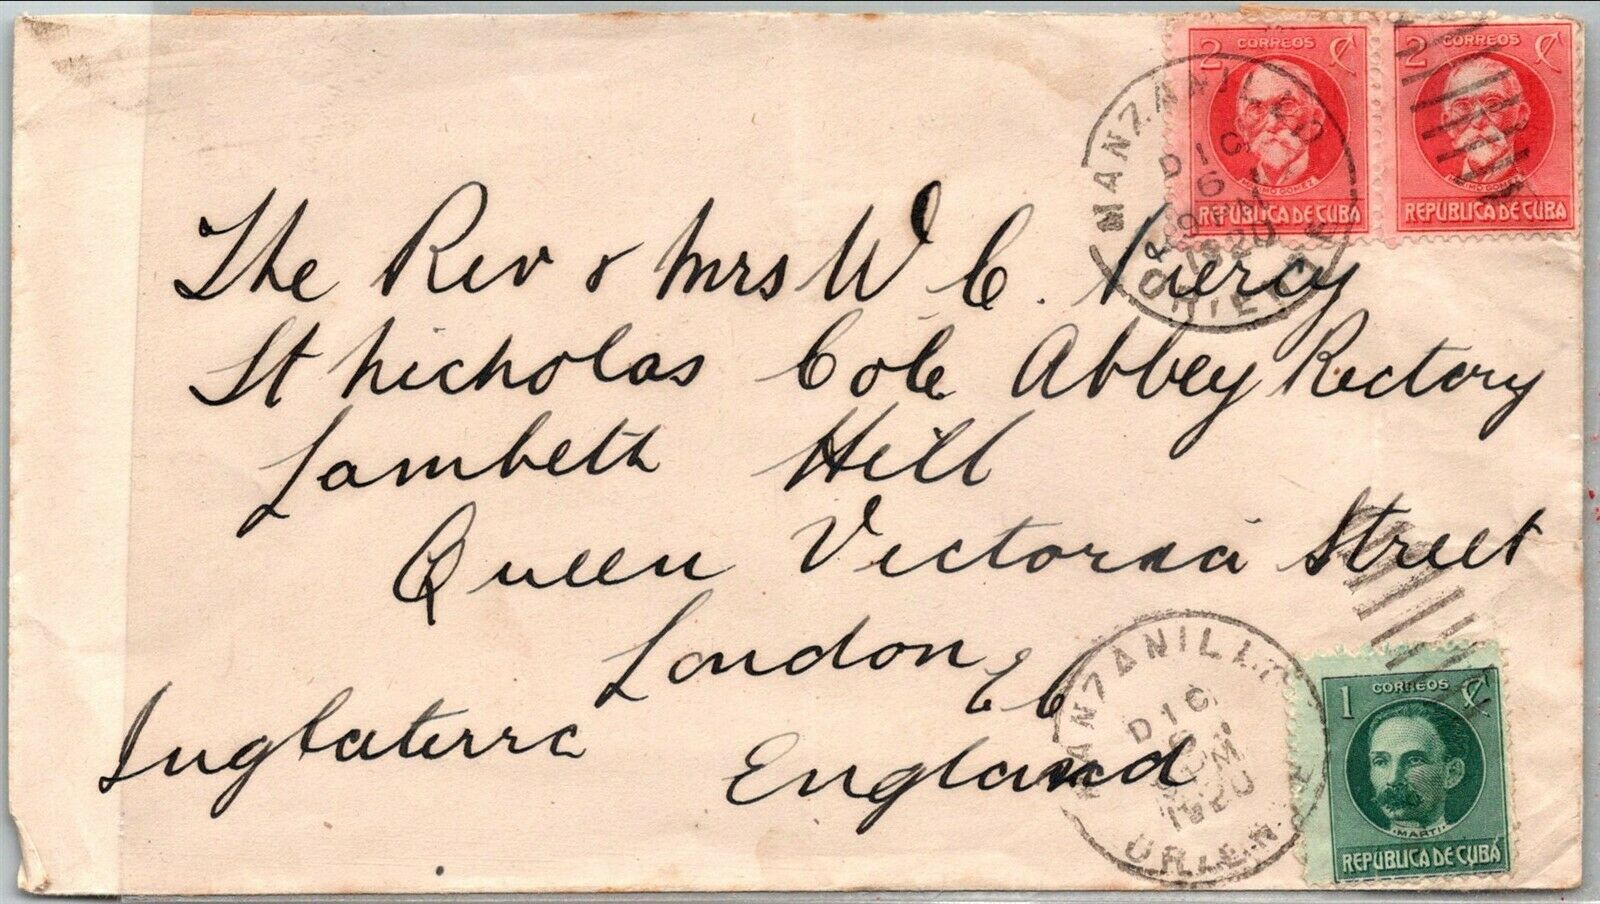 2 CORREOS ¢ 2 CORREOS ¢
MAXIMO GOMEZ MAXIMO GOMEZ
REPUBLICA DE CUBA REPUBLICA DE CUBA
MANZANILLO
DIC
6
9 PM
1920
ORIENTE
The Rev & Mrs W C. Piercy
St Nicholas Cole Abbey Rectory
Lambeth Hill
Queen Victoria Street
London EC
Inglaterra England
MANZANILLO
DIC
6
PM
1920
ORIENTE
1 CORREOS ¢
MARTI
REPÚBLICA DE CUBA